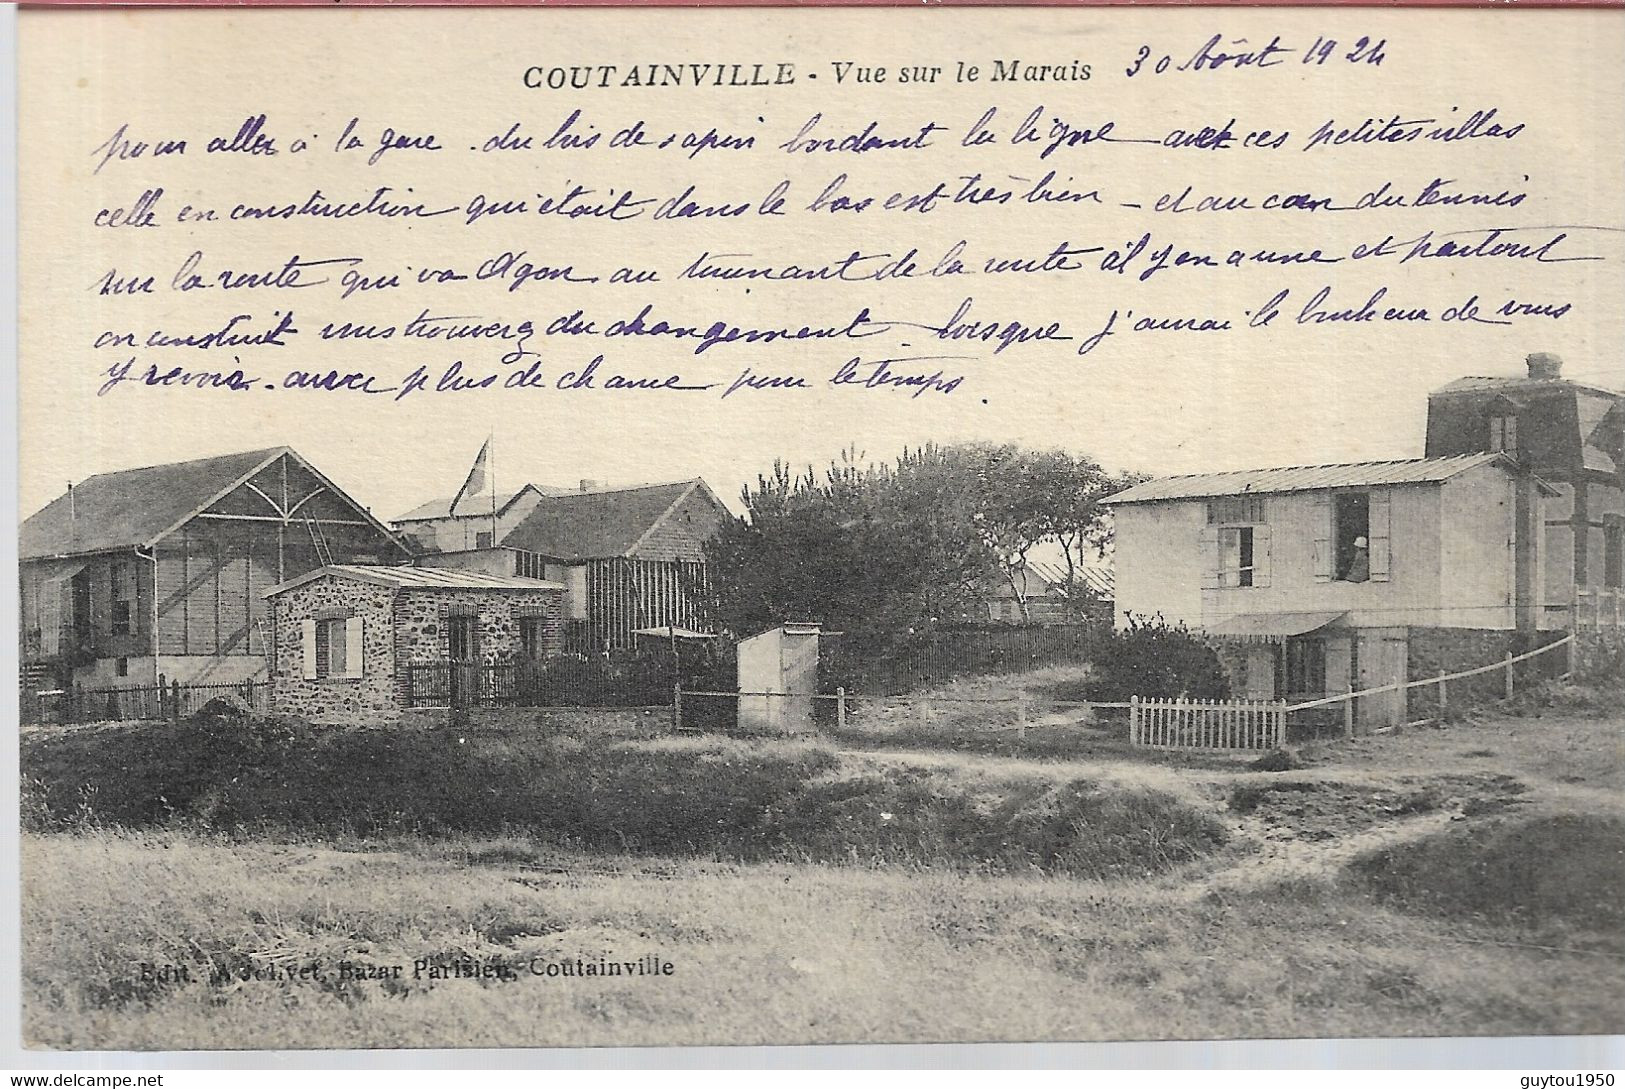 COUTAINVILLE - Vue sur le Marais 30 Aôut 1924
pour aller à la gare . du bois de sapin bordant la ligne avec ces petites villas
celle en construction qui était dans le bas est très bien - et au coin du tennis
sur la route qui va Agon au tournant de la route il y en a une et partout
on construit vous trouverez du changement . lorsque j'aurai le bonheur de vous
y revoir - avec plus de chance pour le temps .
Edit. A Jolivet, Bazar Parisien, Coutainville
delcampe.net guytou1950